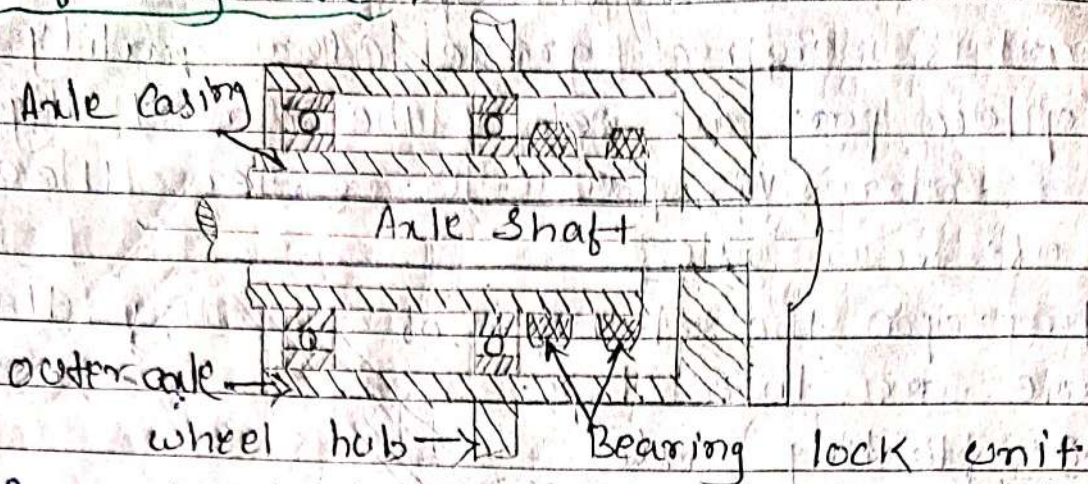 Axle Casing
Axle Shaft
outer axle
wheel hub
Bearing lock unit